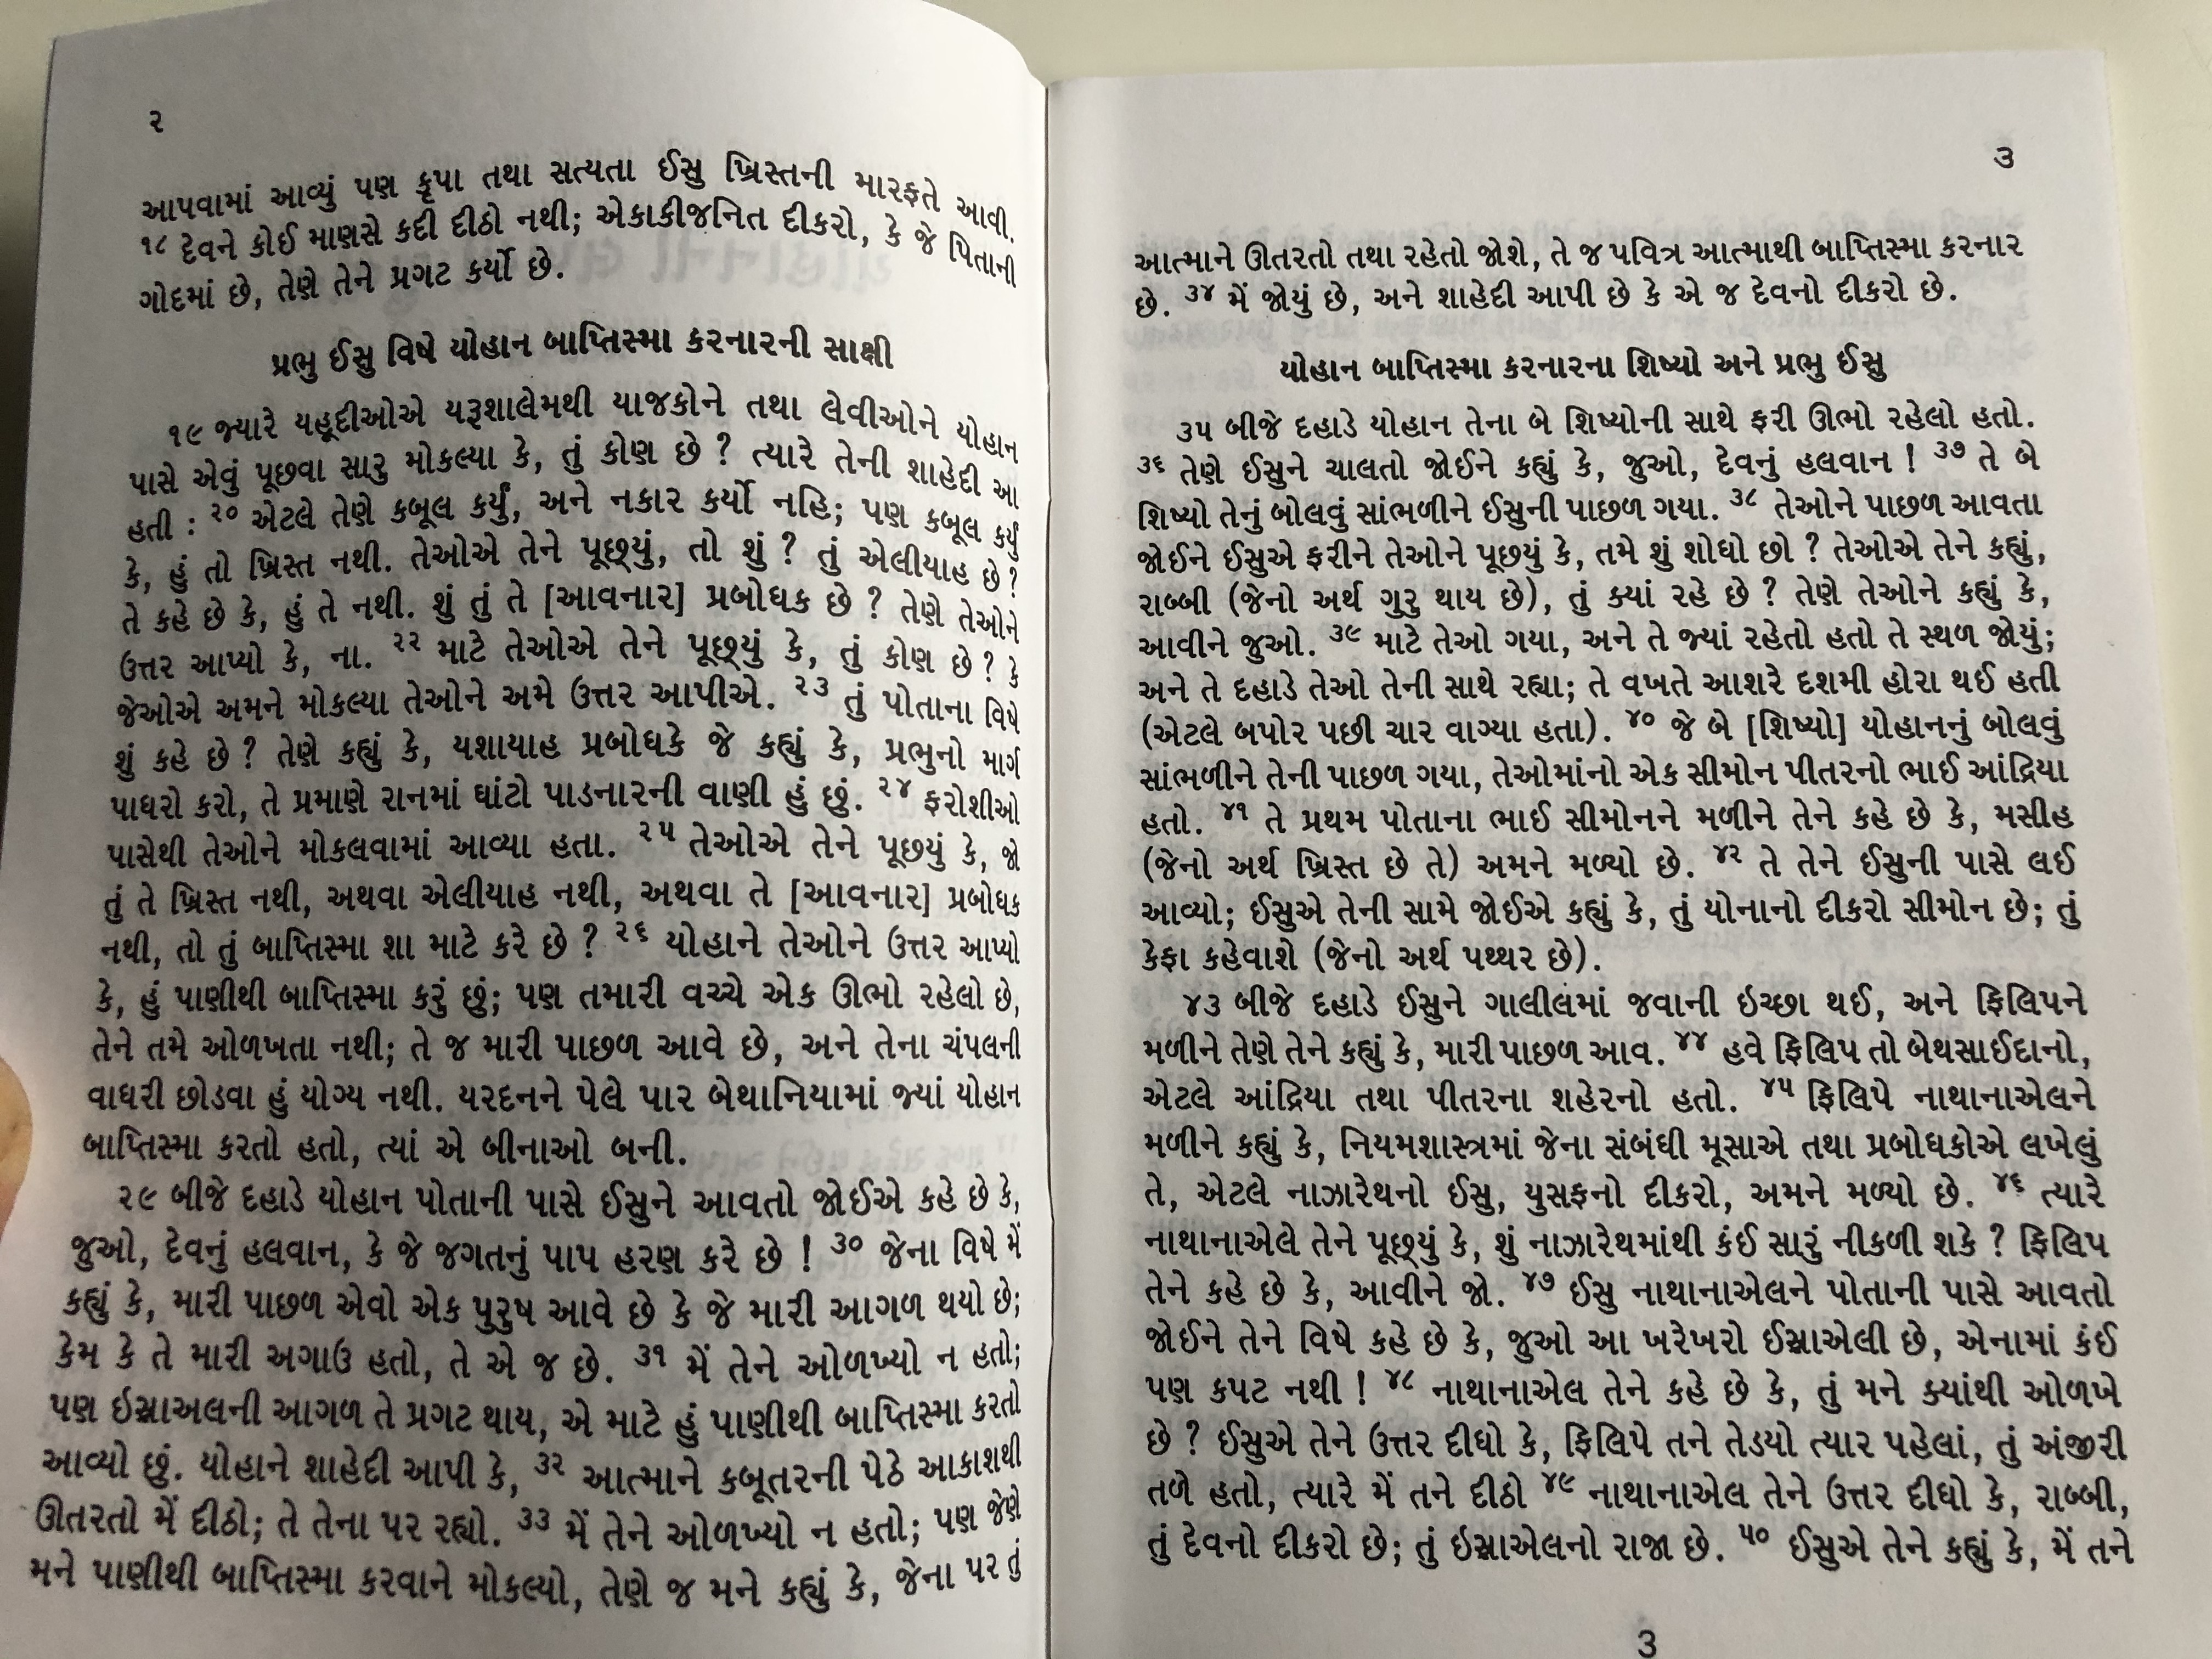 ૨
આપવામાં આવ્યું પણ કૃપા તથા સત્યતા ઈસુ ખ્રિસ્તની મારફતે આવી.
૧૮ દેવને કોઈ માણસે કદી દીઠો નથી; એકાકીજનિત દીકરો, કે જે પિતાની
ગોદમાં છે, તેણે તેને પ્રગટ કર્યો છે.
પ્રભુ ઈસુ વિષે યોહાન બાપ્તિસ્મા કરનારની સાક્ષી
૧૯ જ્યારે યહૂદીઓએ યરૂશાલેમથી યાજકોને તથા લેવીઓને યોહાન
પાસે એવું પૂછવા સારુ મોકલ્યા કે, તું કોણ છે ? ત્યારે તેની શાહેદી આ
હતી : ૨૦ એટલે તેણે કબૂલ કર્યું, અને નકાર કર્યો નહિ; પણ કબૂલ કર્યું
કે, હું તો ખ્રિસ્ત નથી. તેઓએ તેને પૂછ્યું, તો શું ? તું એલીયાહ છે ?
તે કહે છે કે, હું તે નથી. શું તું તે [આવનાર] પ્રબોધક છે ? તેણે તેઓને
ઉત્તર આપ્યો કે, ના. ૨૨ માટે તેઓએ તેને પૂછ્યું કે, તું કોણ છે ? કે
જેઓએ અમને મોકલ્યા તેઓને અમે ઉત્તર આપીએ. ૨૩ તું પોતાના વિષે
શું કહે છે ? તેણે કહ્યું કે, યશાયાહ પ્રબોધકે જે કહ્યું કે, પ્રભુનો માર્ગ
પાધરો કરો, તે પ્રમાણે રાનમાં ઘાંટો પાડનારની વાણી હું છું. ૨૪ ફરોશીઓ
પાસેથી તેઓને મોકલવામાં આવ્યા હતા. ૨૫ તેઓએ તેને પૂછયું કે, જો
તું તે ખ્રિસ્ત નથી, અથવા એલીયાહ નથી, અથવા તે [આવનાર] પ્રબોધક
નથી, તો તું બાપ્તિસ્મા શા માટે કરે છે ? ૨૬ યોહાને તેઓને ઉત્તર આપ્યો
કે, હું પાણીથી બાપ્તિસ્મા કરું છું; પણ તમારી વચ્ચે એક ઊભો રહેલો છે,
તેને તમે ઓળખતા નથી; તે જ મારી પાછળ આવે છે, અને તેના ચંપલની
વાધરી છોડવા હું યોગ્ય નથી. યરદનને પેલે પાર બેથાનિયામાં જ્યાં યોહાન
બાપ્તિસ્મા કરતો હતો, ત્યાં એ બીનાઓ બની.
૨૯ બીજે દહાડે યોહાન પોતાની પાસે ઈસુને આવતો જોઈએ કહે છે કે,
જુઓ, દેવનું હલવાન, કે જે જગતનું પાપ હરણ કરે છે ! ૩૦ જેના વિષે મેં
કહ્યું કે, મારી પાછળ એવો એક પુરુષ આવે છે કે જે મારી આગળ થયો છે;
કેમ કે તે મારી અગાઉ હતો, તે એ જ છે. ૩૧ મેં તેને ઓળખ્યો ન હતો;
પણ ઇસ્રાઅલની આગળ તે પ્રગટ થાય, એ માટે હું પાણીથી બાપ્તિસ્મા કરતો
આવ્યો છું. યોહાને શાહેદી આપી કે, ૩૨ આત્માને કબૂતરની પેઠે આકાશથી
ઊતરતો મેં દીઠો; તે તેના પર રહ્યો. ૩૩ મેં તેને ઓળખ્યો ન હતો; પણ જેણે
મને પાણીથી બાપ્તિસ્મા કરવાને મોકલ્યો, તેણે જ મને કહ્યું કે, જેના પર તું
૩
આત્માને ઊતરતો તથા રહેતો જોશે, તે જ પવિત્ર આત્માથી બાપ્તિસ્મા કરનાર
છે. ૩૪ મેં જોયું છે, અને શાહેદી આપી છે કે એ જ દેવનો દીકરો છે.
યોહાન બાપ્તિસ્મા કરનારના શિષ્યો અને પ્રભુ ઈસુ
૩૫ બીજે દહાડે યોહાન તેના બે શિષ્યોની સાથે ફરી ઊભો રહેલો હતો.
૩૬ તેણે ઈસુને ચાલતો જોઈને કહ્યું કે, જુઓ, દેવનું હલવાન ! ૩૭ તે બે
શિષ્યો તેનું બોલવું સાંભળીને ઈસુની પાછળ ગયા. ૩૮ તેઓને પાછળ આવતા
જોઈને ઈસુએ ફરીને તેઓને પૂછયું કે, તમે શું શોધો છો ? તેઓએ તેને કહ્યું,
રાબ્બી (જેનો અર્થ ગુરુ થાય છે), તું ક્યાં રહે છે ? તેણે તેઓને કહ્યું કે,
આવીને જુઓ. ૩૯ માટે તેઓ ગયા, અને તે જ્યાં રહેતો હતો તે સ્થળ જોયું;
અને તે દહાડે તેઓ તેની સાથે રહ્યા; તે વખતે આશરે દશમી હોરા થઈ હતી
(એટલે બપોર પછી ચાર વાગ્યા હતા). ૪૦ જે બે [શિષ્યો] યોહાનનું બોલવું
સાંભળીને તેની પાછળ ગયા, તેઓમાંનો એક સીમોન પીતરનો ભાઈ આંદ્રિયા
હતો. ૪૧ તે પ્રથમ પોતાના ભાઈ સીમોનને મળીને તેને કહે છે કે, મસીહ
(જેનો અર્થ ખ્રિસ્ત છે તે) અમને મળ્યો છે. ૪૨ તે તેને ઈસુની પાસે લઈ
આવ્યો; ઈસુએ તેની સામે જોઈએ કહ્યું કે, તું યોનાનો દીકરો સીમોન છે; તું
કેફા કહેવાશે (જેનો અર્થ પથ્થર છે).
૪૩ બીજે દહાડે ઈસુને ગાલીલમાં જવાની ઇચ્છા થઈ, અને ફિલિપને
મળીને તેણે તેને કહ્યું કે, મારી પાછળ આવ. ૪૪ હવે ફિલિપ તો બેથસાઈદાનો,
એટલે આંદ્રિયા તથા પીતરના શહેરનો હતો. ૪૫ ફિલિપે નાથાનાએલને
મળીને કહ્યું કે, નિયમશાસ્ત્રમાં જેના સંબંધી મૂસાએ તથા પ્રબોધકોએ લખેલું
તે, એટલે નાઝારેથનો ઈસુ, યુસફનો દીકરો, અમને મળ્યો છે. ૪૬ ત્યારે
નાથાનાએલે તેને પૂછ્યું કે, શું નાઝારેથમાંથી કંઈ સારું નીકળી શકે ? ફિલિપ
તેને કહે છે કે, આવીને જો. ૪૭ ઈસુ નાથાનાએલને પોતાની પાસે આવતો
જોઈને તેને વિષે કહે છે કે, જુઓ આ ખરેખરો ઈસ્રાએલી છે, એનામાં કંઈ
પણ કપટ નથી ! ૪૮ નાથાનાએલ તેને કહે છે કે, તું મને ક્યાંથી ઓળખે
છે ? ઈસુએ તેને ઉત્તર દીધો કે, ફિલિપે તને તેડયો ત્યાર પહેલાં, તું અંજીરી
તળે હતો, ત્યારે મેં તને દીઠો ૪૯ નાથાનાએલ તેને ઉત્તર દીધો કે, રાબ્બી,
તું દેવનો દીકરો છે; તું ઇસ્રાએલનો રાજા છે. ૫૦ ઈસુએ તેને કહ્યું કે, મેં તને
3